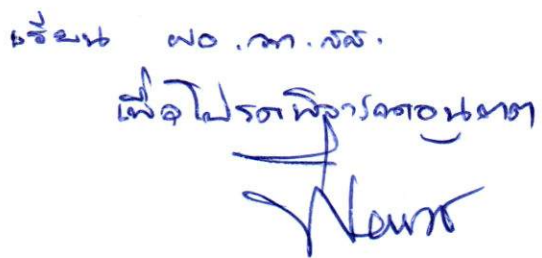 เรียน ผอ.วภ.สส.
เพื่อโปรดพิจารณาอนุญาต